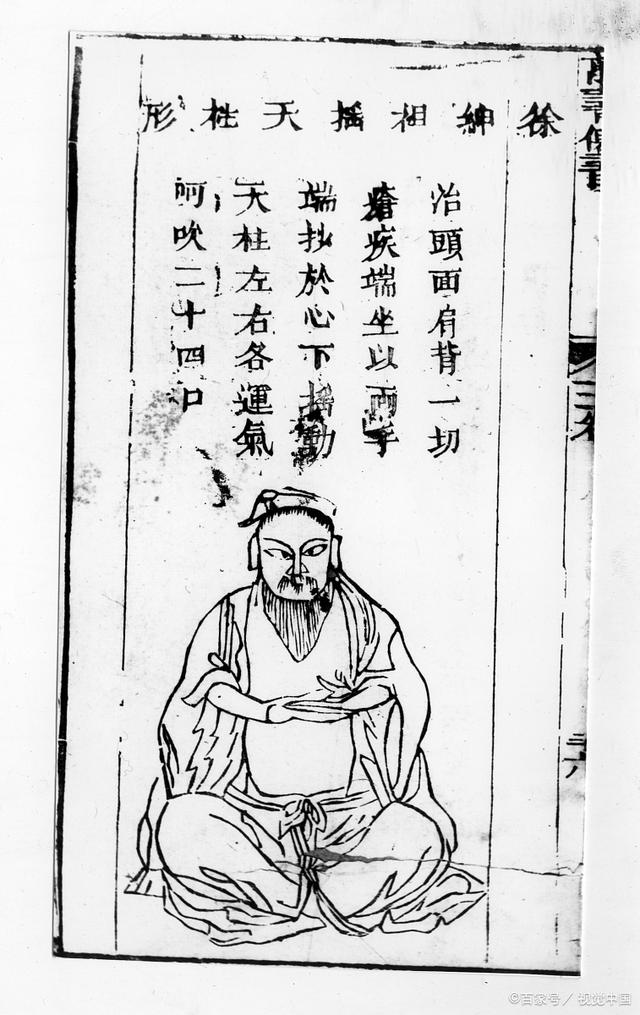 徐紳相搖天柱形
治頭面肩背一切
瘡疾端坐以兩手
端抄於心下搖動
天柱左右各運氣
呵吹二十四口
©百家号／视觉中国